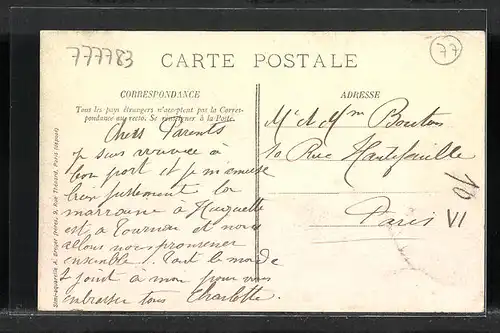 777783
CARTE POSTALE
77
CORRESPONDANCE
Tous les pays étrangers n'acceptent pas la Corres-
pondance au recto. Se renseigner à la Poste.
ADRESSE
Chers Parents
je suis arrivée à
bon port et je m'amuse
bien justement la
marraine à Huguette
est à Tournan et nous
allons nous promener
ensemble. Tout le monde
se joint à moi pour vous
embrasser tous Charlotte
Mr & Mme Bouton
10 Rue Hautefeuille
Paris
10
VI